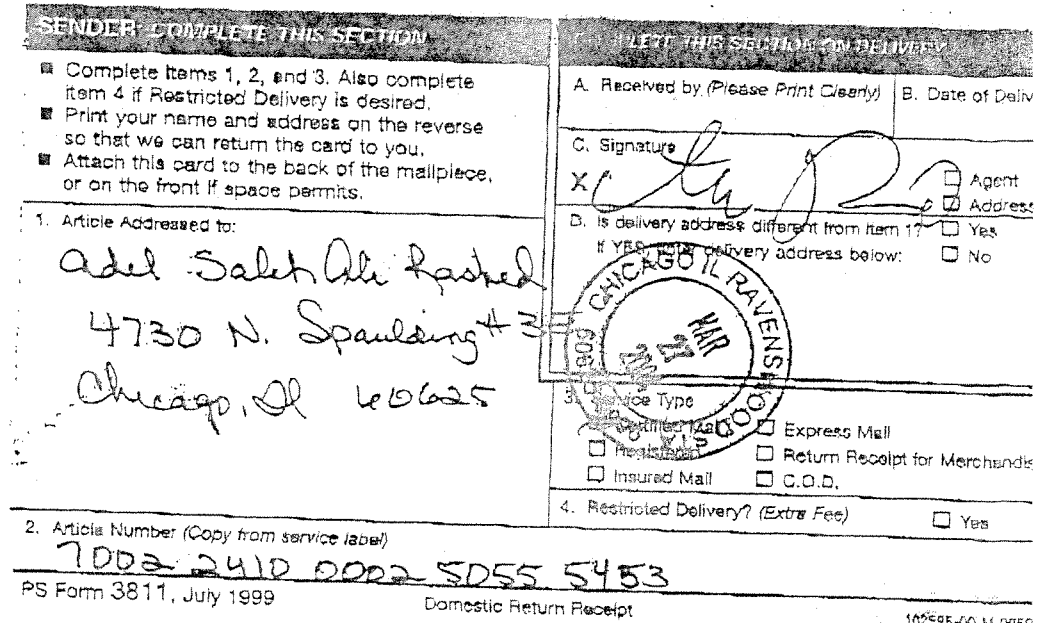 SENDER: COMPLETE THIS SECTION
■ Complete items 1, 2, and 3. Also complete
item 4 if Restricted Delivery is desired.
■ Print your name and address on the reverse
so that we can return the card to you.
■ Attach this card to the back of the mailpiece,
or on the front if space permits.
1. Article Addressed to:
Adel Saleh Ali Rashed
4730 N. Spaulding #3
Chicago, Il 60625
2. Article Number (Copy from service label)
7002 2410 0002 5055 5453
PS Form 3811, July 1999
Domestic Return Receipt
COMPLETE THIS SECTION ON DELIVERY
A. Received by (Please Print Clearly)
B. Date of Deliv
C. Signature
X
☐ Agent
☑ Address
D. Is delivery address different from item 1? ☐ Yes
If YES, enter delivery address below: ☐ No
CHICAGO IL RAVENSWOOD STA
MAR
27
3. Service Type
Certified Mail ☐ Express Mail
☐ Registered ☐ Return Receipt for Merchandis
☐ Insured Mail ☐ C.O.D.
4. Restricted Delivery? (Extra Fee) ☐ Yes